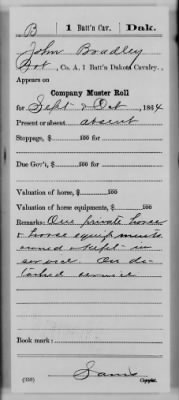 B | 1 Batt'n Cav. | Dak.
John Bradley
Co. A, 1 Batt'n Dakota Cavalry.
Appears on
Company Muster Roll
for Sept & Oct, 1864
Present or absent absent
Stoppage, $ 100 for
Due Gov't, $ 100 for
Valuation of horse, $ 100
Valuation of horse equipments, $ 100
Remarks: One private horse
& horse equipments
owned & kept in
service. On de-
tached service
Book mark:
(358)
Copyist.